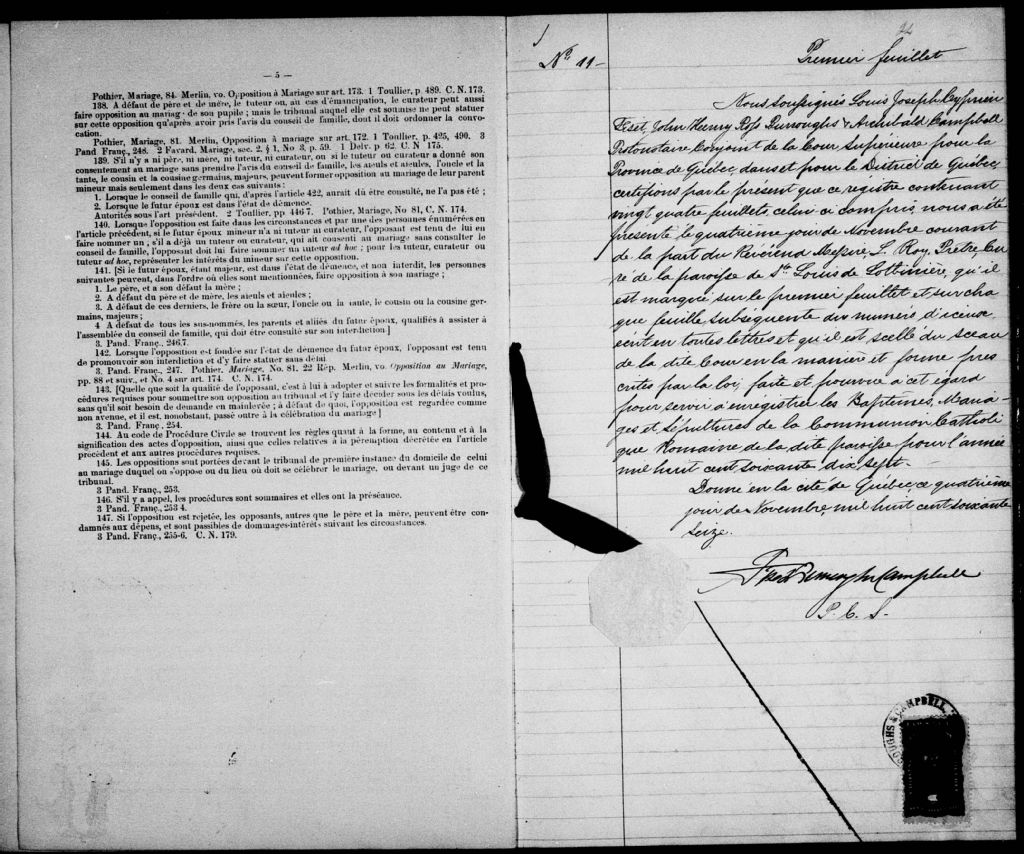 — 5 —
Pothier, Mariage, 84. Merlin, vo. Opposition à Mariage sur art. 173. 1 Toullier, p. 489. C. N. 173.
138. A défaut de père et de mère, le tuteur ou, au cas d'émancipation, le curateur peut aussi
faire opposition au mariage de son pupile ; mais le tribunal auquel elle est soumise ne peut statuer
sur cette opposition qu'après avoir pris l'avis du conseil de famille, dont il doit ordonner la convo-
cation.
Pothier, Mariage, 81. Merlin, Opposition à mariage sur art. 172. 1 Toullier, p. 425, 490. 3
Pand. Franç., 248. 2 Favard, Mariage, sec. 2. § 1, No 3, p. 59. 1 Delv. p. 62. C. N 175.
139. S'il n'y a ni père, ni mère, ni tuteur, ni curateur, ou si le tuteur ou curateur a donné son
consentement au mariage sans prendre l'avis du conseil de famille, les aïeuls et aïeules, l'oncle et la
tante, le cousin et la cousine germains, majeurs, peuvent former opposition au mariage de leur parent
mineur mais seulement dans les deux cas suivants :
1. Lorsque le conseil de famille qui, d'après l'article 422, aurait dû être consulté, ne l'a pas été ;
2. Lorsque le futur époux est dans l'état de démence.
Autorités sous l'art précédent. 2 Toullier, pp 446 7. Pothier, Mariage, No 81, C. N. 174.
140. Lorsque l'opposition est faite dans les circonstances et par une des personnes énumérées en
l'article précédent, si le futur époux mineur n'a ni tuteur ni curateur, l'opposant est tenu de lui en
faire nommer un ; s'il a déjà un tuteur ou curateur, qui ait consenti au mariage sans consulter le
conseil de famille, l'opposant doit lui faire nommer un tuteur ad hoc ; pour les tuteur, curateur ou
tuteur ad hoc, représenter les intérêts du mineur sur cette opposition.
141. [Si le futur époux, étant majeur, est dans l'état de démence, et non interdit, les personnes
suivantes peuvent, dans l'ordre où elles sont mentionnées, faire opposition à son mariage ;
1. Le père, et a son défaut la mère ;
2. A défaut du père et de mère, les aïeuls et aïeules ;
3. A défaut de ces derniers, le frère ou la sœur, l'oncle ou la tante, le cousin ou la cousine ger-
mains, majeurs ;
4 A défaut de tous les sus-nommés, les parents et alliés du futur époux, qualifiés à assister à
l'assemblée du conseil de famille, qui doit être consulté sur son interdiction]
3. Pand. Franç., 246.7.
142. Lorsque l'opposition est fondée sur l'état de démence du futur époux, l'opposant est tenu
de promouvoir son interdiction et d'y faire statuer sans délai
3. Pand. Franç., 247. Pothier. Mariage, No. 81. 22 Rép. Merlin, vo. Opposition au Mariage,
pp. 88 et suiv., et No. 4 sur art. 174. C. N. 174.
143. [Quelle que soit la qualité de l'opposant, c'est à lui à adopter et suivre les formalités et pro-
cédures requises pour soumettre son opposition au tribunal et l'y faire décider sous les délais voulus,
sans qu'il soit besoin de demande en mainlevée ; à défaut de quoi, l'opposition est regardée comme
non avenue, et il est, nonobstant, passé outre à la célébration du mariage]
3. Pand. Franç., 254.
144. Au code de Procédure Civile se trouvent les règles quant à la forme, au contenu et à la
signification des actes d'opposition, ainsi que celles relatives à la péremption décrétée en l'article
précédent et aux autres procédures requises.
145. Les oppositions sont portées devant le tribunal de première instance du domicile de celui
au mariage duquel on s'oppose ou du lieu où doit se célébrer le mariage, ou devant un juge de ce
tribunal.
3 Pand. Franç., 253.
146. S'il y a appel, les procédures sont sommaires et elles ont la préséance.
3. Pand. Franç., 253 4.
147. Si l'opposition est rejetée, les opposants, autres que le père et la mère, peuvent être con-
damnés aux dépens, et sont passibles de dommages-intérêts suivant les circonstances.
3 Pand. Franç., 255-6. C. N. 179.
No 11-
Premier feuillet
Nous soussignés Louis Joseph Cyprien
Fiset, John Henry Ross Burroughs & Archibald Campbell
Protonotaire Conjoint de la Cour Superieure pour la
Province de Québec, dans et pour le District de Québec,
certifions par le présent que ce registre contenant
vingt quatre feuillets, celui ci compris, nous a été
presenté le quatrième jour de Novembre courant
de la part du Révérend Messire, L. Roy, Prêtre, Cu
ré de la paroisse de St Louis de Lotbinière, qu'il
est marqué sur le premier feuillet et sur cha
que feuille subséquente du numero, d'iceux,
écrit en toutes lettres et qu'il est scellé du sceau
de la dite Cour en la manière et forme pres
crites par la loi, faite et pourvue à cet égard
pour servir à enregistrer les Baptêmes, Maria-
ges et sépultures de la Communion Catholi
que Romaine de la dite paroisse pour l'année
mil huit cent soixante dix sept.
Donné en la cité de Québec, ce quatrième
jour de Novembre mil huit cent soixante
seize.
Fiset Burroughs Campbell
P. C. S.
OUGHS & CAMPBELL,